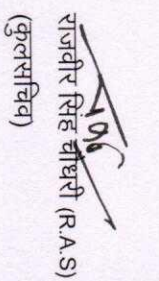 राजवीर सिंह चौधरी (R.A.S)
(कुलसचिव)